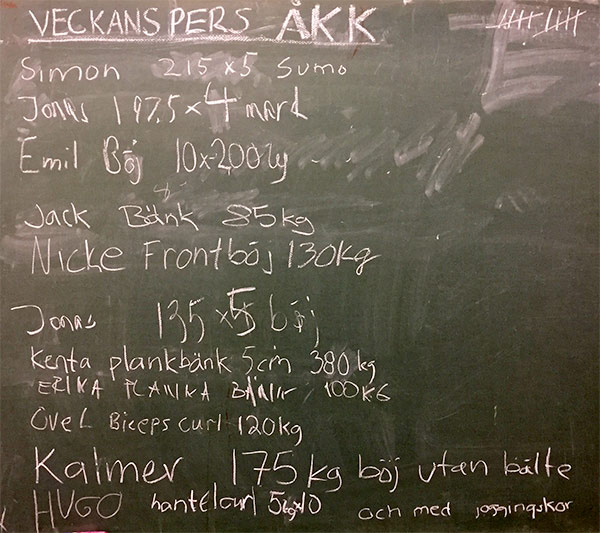 VECKANS PERS ÅKK
Simon 215 x5 Sumo
Jonas 197.5 x 4 mark
Emil Böj 10x200kg
Jack Bänk 85kg
Nicke Frontböj 130kg
Jonas 135 x5 böj
Kenta plankbänk 5cm 380 kg
ERIKA PLANKA BÄNK 100KG
Övel Biceps curl 120kg
Kalmer 175 kg böj utan bälte
HUGO hantelcurl 5kgx10 och med joggingskor